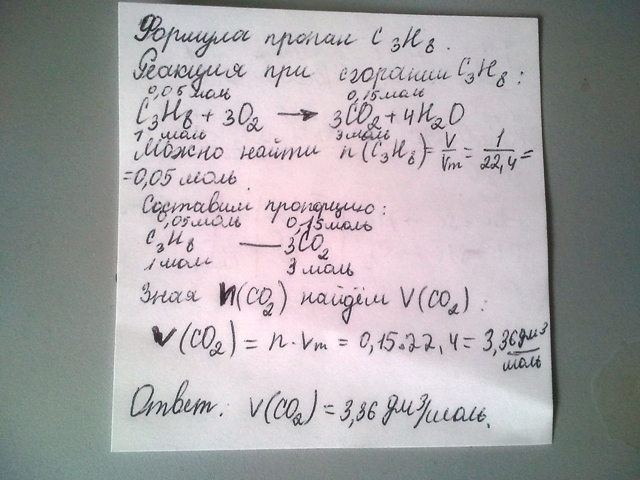 Формула пропан C₃H₈.
Реакция при сгорании C₃H₈:
0,05 моль 0,15 моль
C₃H₈ + 3O₂ → 3CO₂ + 4H₂O
1 моль 3 моль
Можно найти n(C₃H₈) = V/Vm = 1/22,4 =
= 0,05 моль
Составим пропорцию:
0,05 моль 0,15 моль
C₃H₈ — 3CO₂
1 моль 3 моль
Зная n(CO₂) найдём V(CO₂):
V(CO₂) = n·Vm = 0,15·22,4 = 3,36 дм³/моль
Ответ: V(CO₂) = 3,36 дм³/моль.